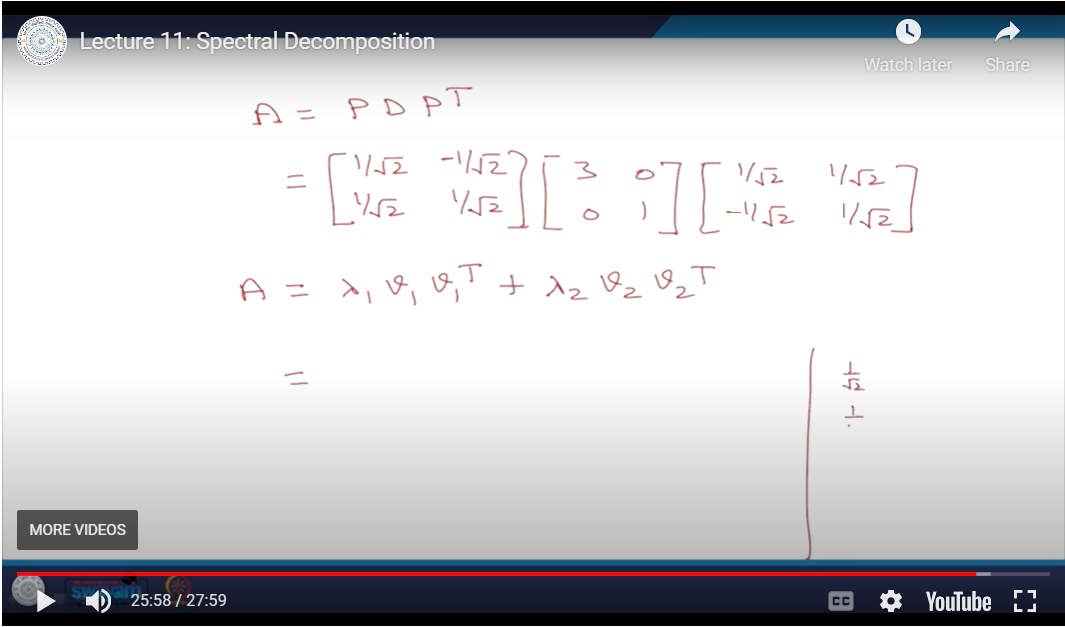 Lecture 11: Spectral Decomposition
Watch later
Share
A = P D Pᵀ
= [1/√2 -1/√2] [3 0] [1/√2 1/√2]
[1/√2 1/√2] [0 1] [-1/√2 1/√2]
A = λ₁ ϑ₁ ϑ₁ᵀ + λ₂ ϑ₂ ϑ₂ᵀ
=
1/√2
1
MORE VIDEOS
swayam
25:58 / 27:59
CC
YouTube